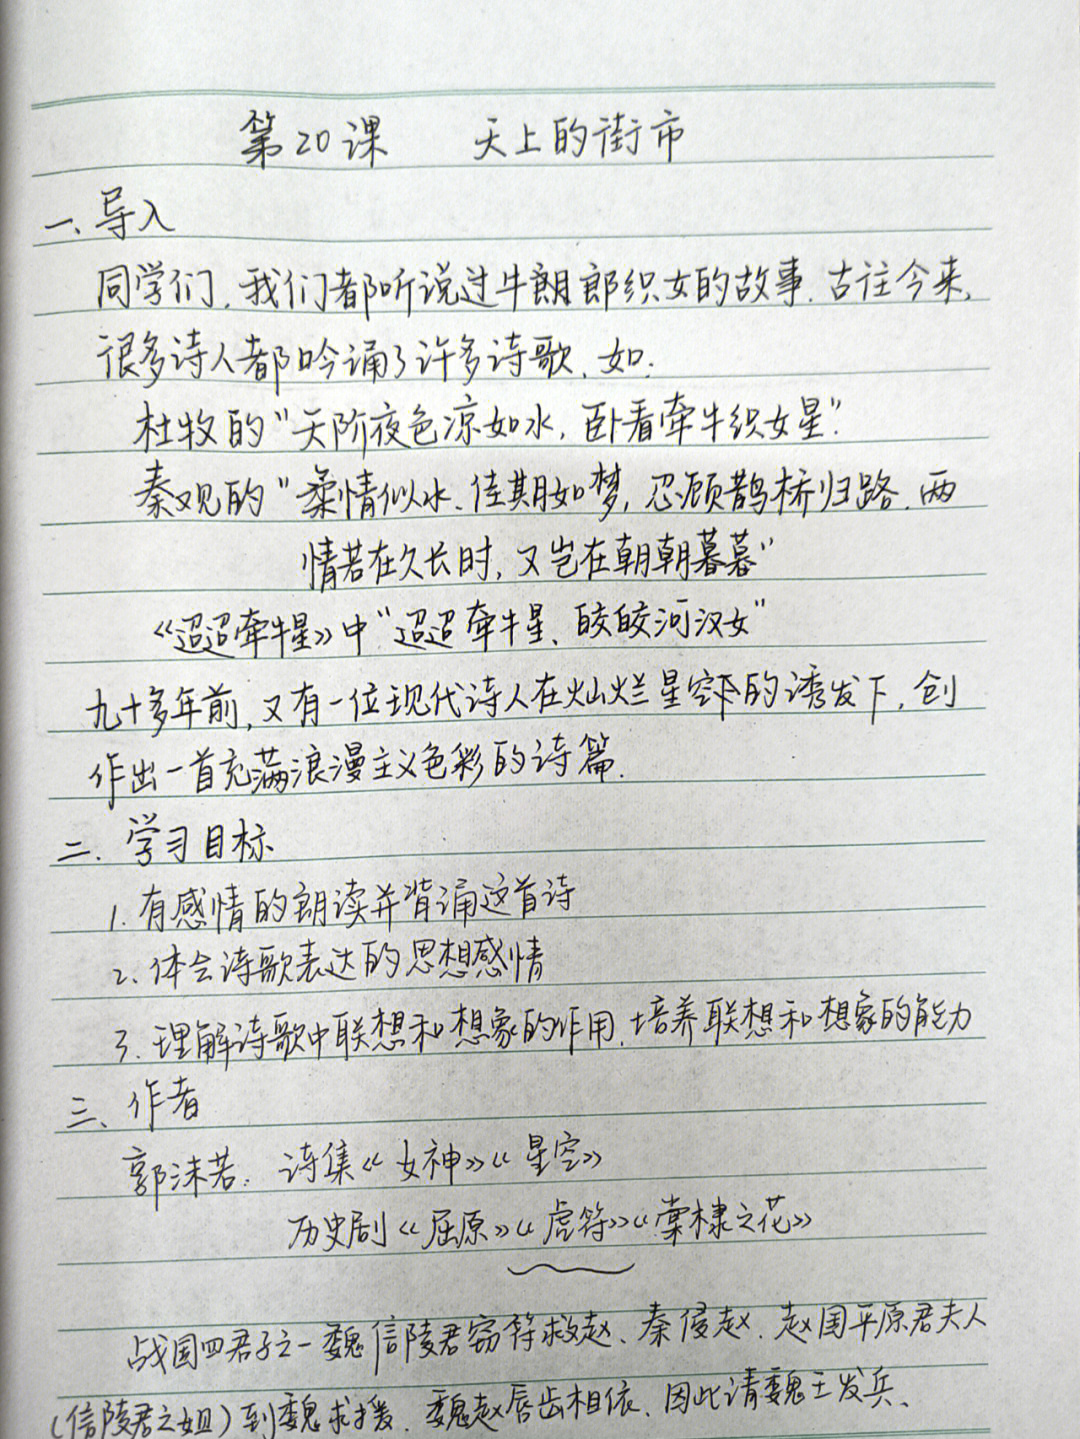 第20课 天上的街市
一、导入
同学们,我们都听说过牛朗郎织女的故事.古往今来,
很多诗人都吟诵了许多诗歌.如:
杜牧的"天阶夜色凉如水,卧看牵牛织女星".
秦观的"柔情似水、佳期如梦,忍顾鹊桥归路.两
情若在久长时,又岂在朝朝暮暮"
《迢迢牵牛星》中"迢迢牵牛星、皎皎河汉女"
九十多年前,又有一位现代诗人在灿烂星空下的诱发下,创
作出一首充满浪漫主义色彩的诗篇.
二.学习目标
1.有感情的朗读并背诵这首诗
2.体会诗歌表达的思想感情
3.理解诗歌中联想和想象的作用.培养联想和想象的能力
三、作者
郭沫若:诗集《女神》《星空》
历史剧《屈原》《虎符》《棠棣之花》
战国四君子之一魏信陵君窃符救赵、秦侵赵.赵国平原君夫人
(信陵君之姐)到魏求援.魏赵唇齿相依、因此请魏王发兵、